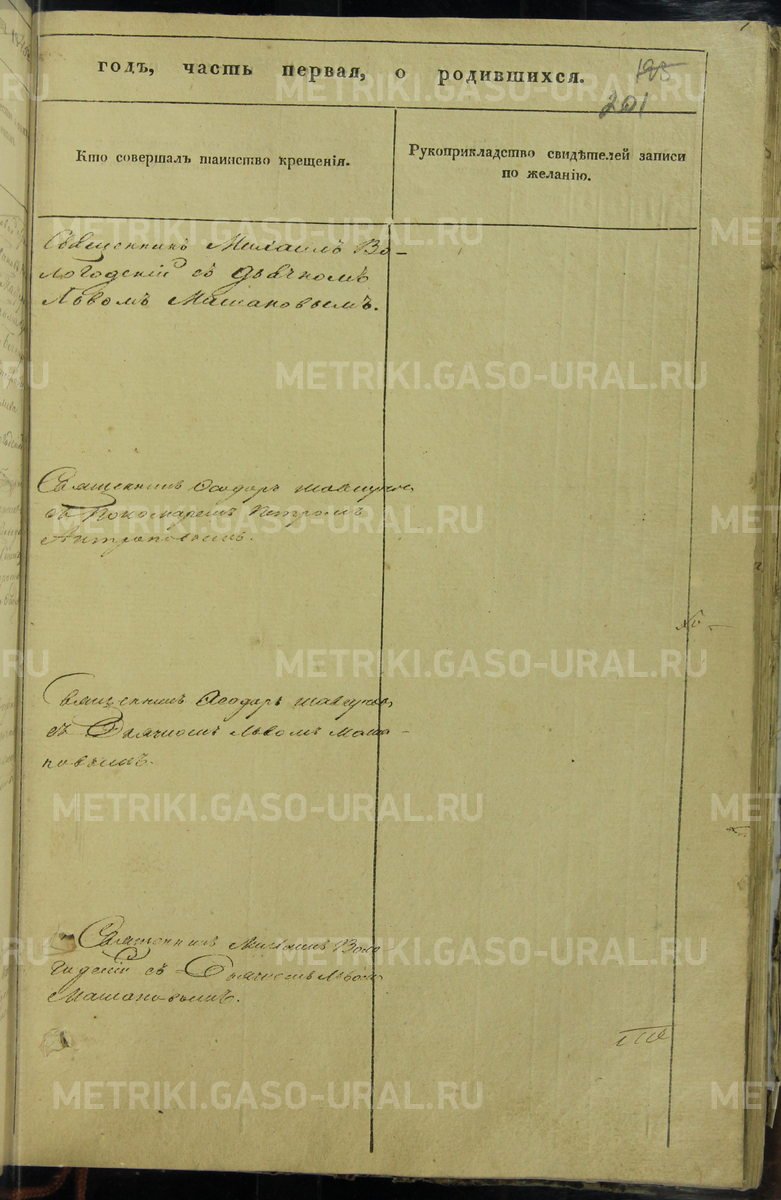 годъ, часть первая, о родившихся.
195
201
Кто совершалъ таинство крещенія.
Рукоприкладство свидѣтелей записи
по желанію.
Священникъ Михаилъ Во-
логодскій съ дьячкомъ
Львомъ Машановымъ.
Священникъ Ѳеодоръ
съ Пономаремъ Петромъ
Антроповымъ.
Священникъ Ѳеодоръ
съ Дьячкомъ Львомъ Маша-
новымъ.
Священникъ Михаилъ Воло
годскій съ Дьячкомъ Львом
Машановымъ.
METRIKI.GASO-URAL.RU